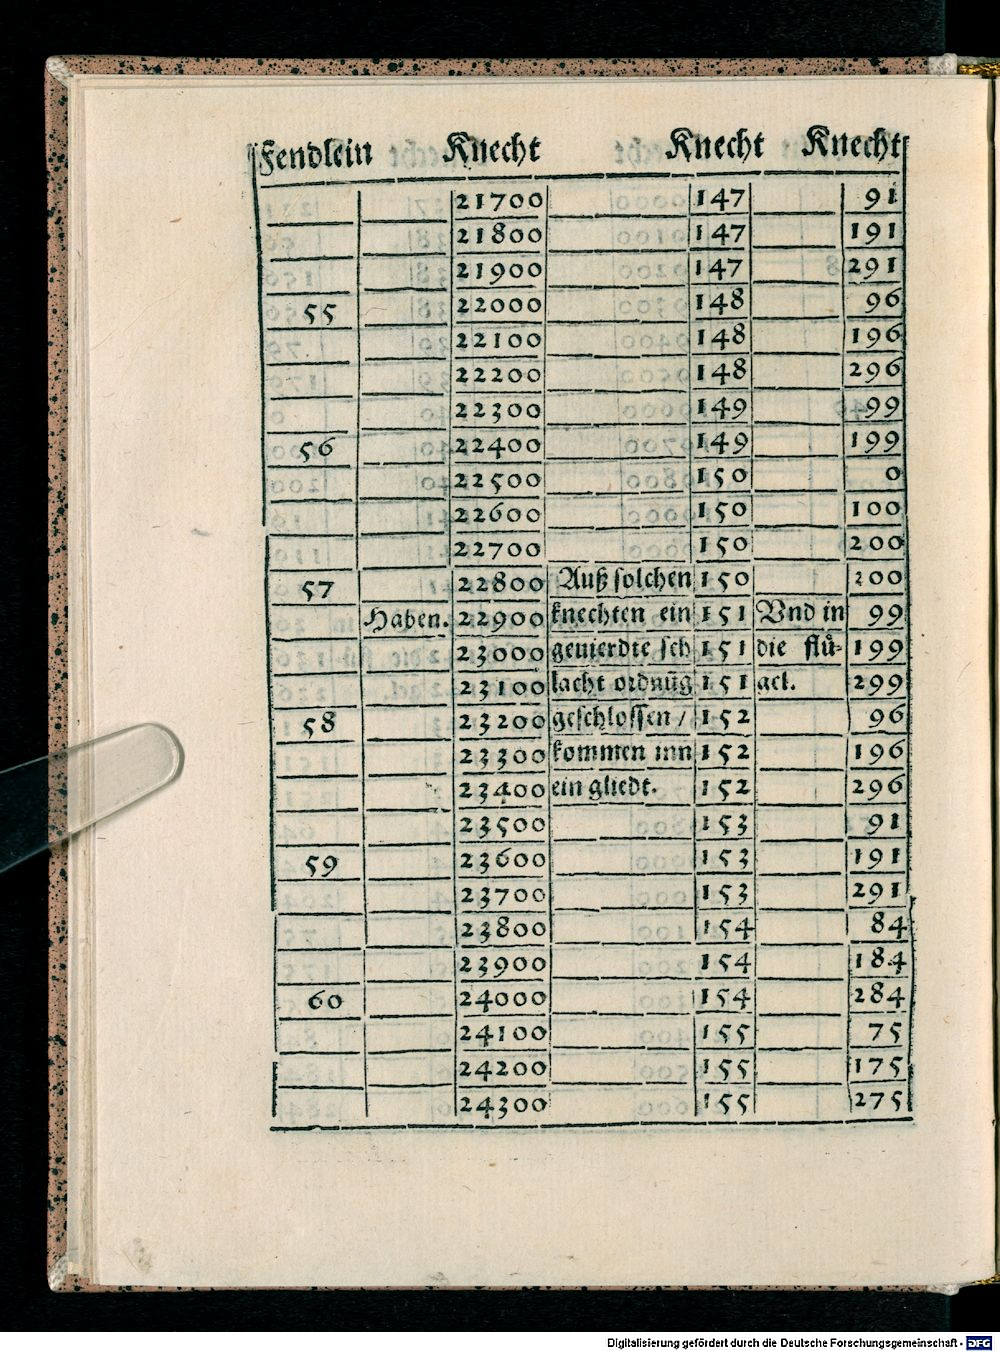 Fendlein Knecht Knecht Knecht
21700 147 91
21800 147 191
21900 147 291
55 22000 148 96
22100 148 196
22200 148 296
22300 149 99
56 22400 149 199
22500 150 0
22600 150 100
22700 150 200
57 22800 Auß solchen 150 200
Haben. 22900 knechten ein 151 Vnd in 99
23000 geuierdte sch 151 die flů- 199
23100 lacht ordnūg 151 gel. 299
58 23200 geschlossen / 152 96
23300 kommen inn 152 196
23400 ein gliedt. 152 296
23500 153 91
59 23600 153 191
23700 153 291
23800 154 84
23900 154 184
60 24000 154 284
24100 155 75
24200 155 175
24300 155 275
Digitalisierung gefördert durch die Deutsche Forschungsgemeinschaft - DFG